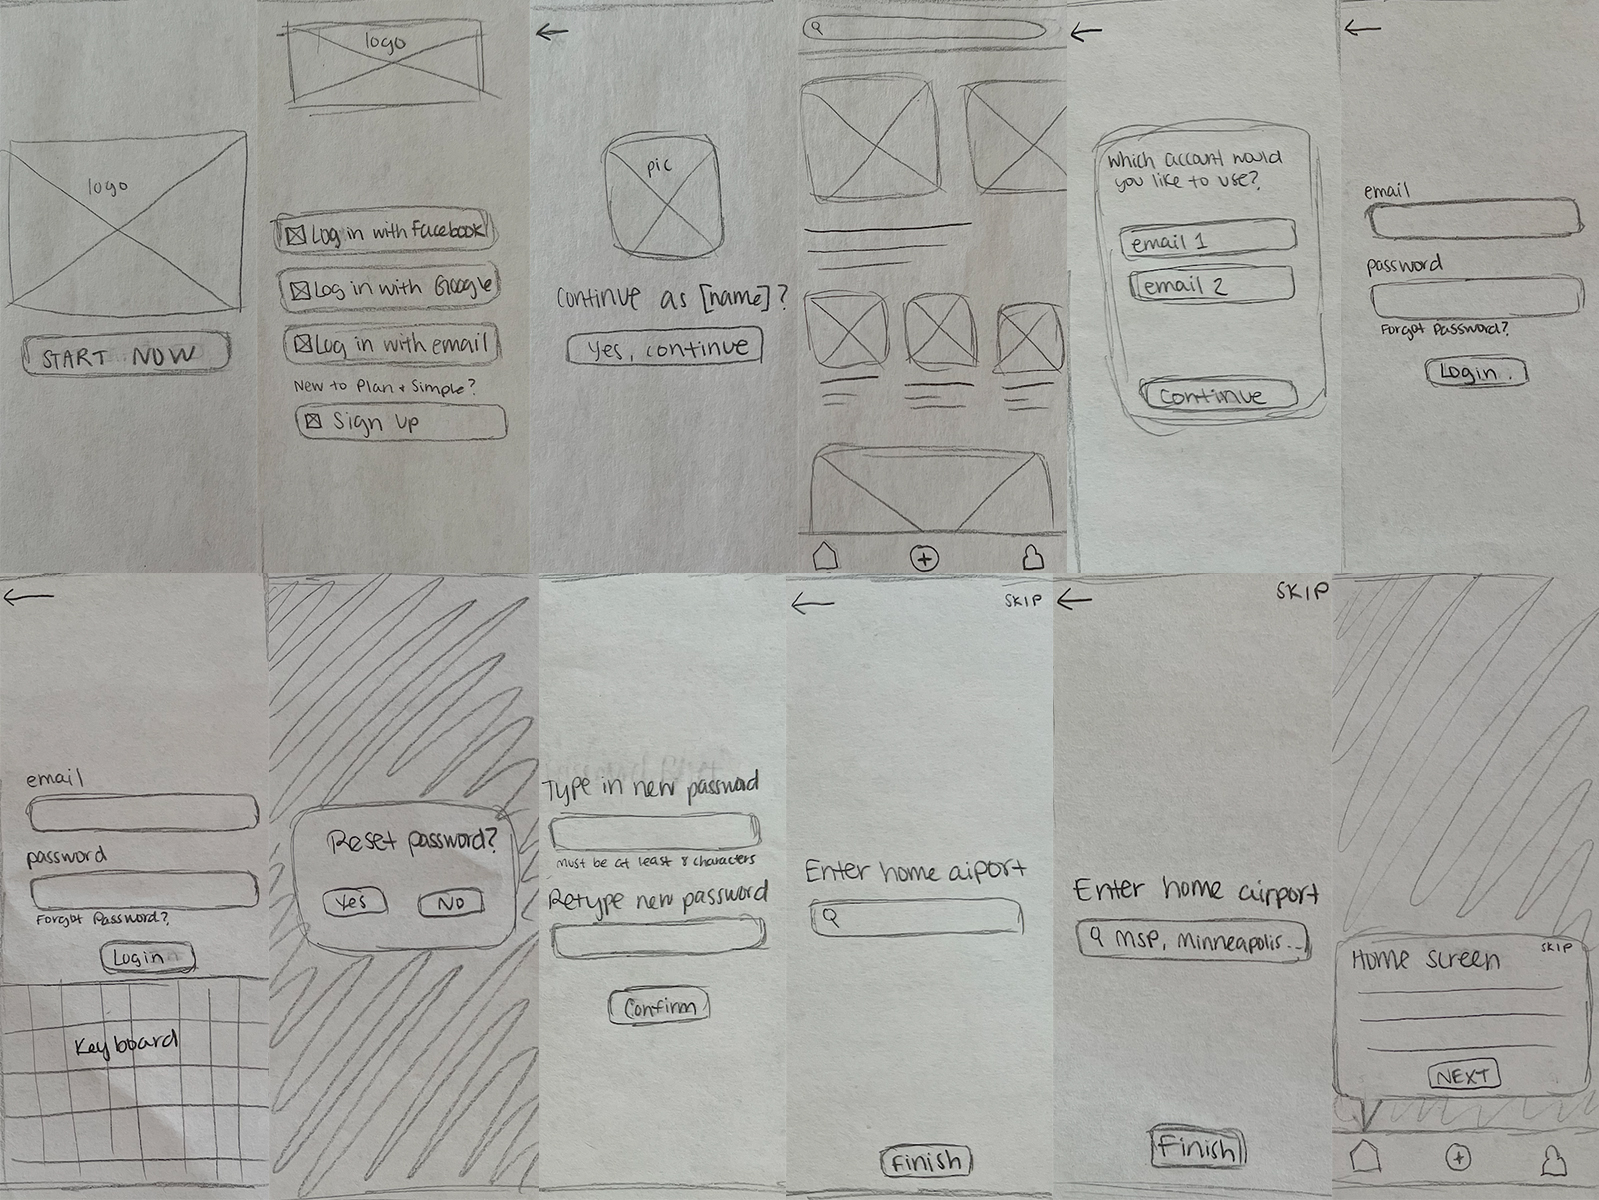 logo
START NOW
logo
Log in with Facebook
Log in with Google
Log in with email
New to Plan + Simple?
Sign up
pic
Continue as [name]?
Yes, continue
Which account would
you like to use?
email 1
email 2
Continue
email
password
Forgot Password?
Login
email
password
Forgot Password?
Login
Keyboard
Reset password?
Yes
No
Type in new password
must be at least 8 characters
Retype new password
Confirm
SKIP
Enter home aiport
Finish
SKIP
Enter home airport
MSP, Minneapolis...
Finish
Home screen
SKIP
NEXT